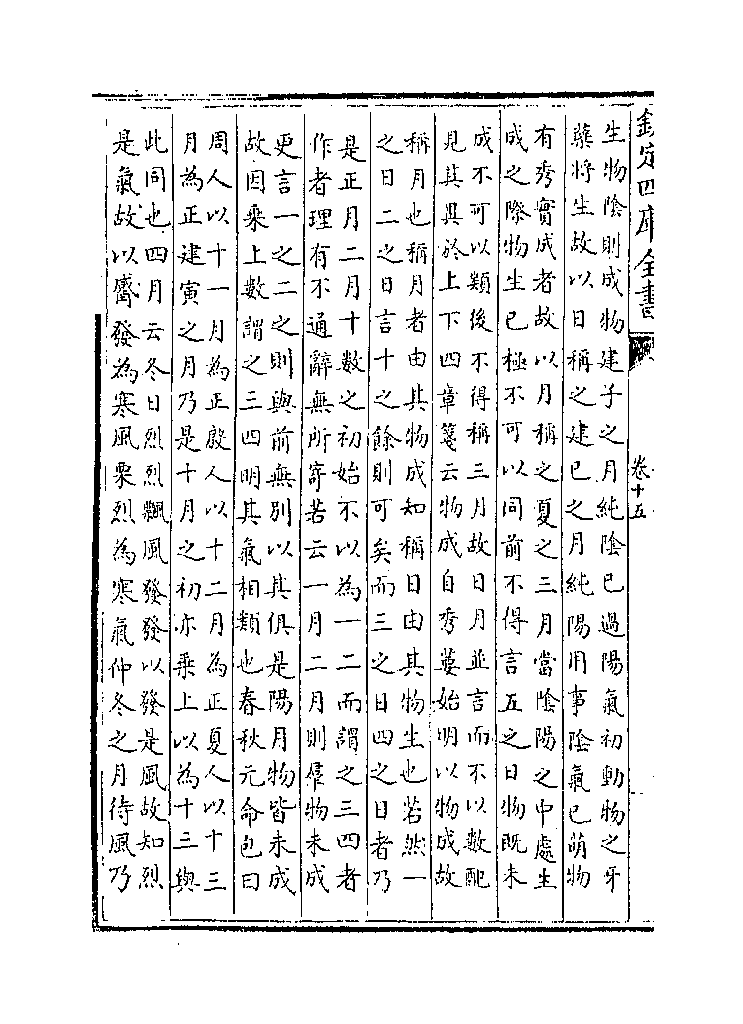 欽定四庫全書
卷十五
生物陰則成物建子之月純陰已過陽氣初動物之牙
蘖將生故以日稱之建巳之月純陽用事陰氣已萌物
有秀實成者故以月稱之夏之三月當陰陽之中處生
成之際物生已極不可以同前不得言五之日物既未
成不可以類後不得稱三月故日月並言而不以數配
見其異於上下四章箋云物成自秀葽始明以物成故
稱月也稱月者由其物成知稱日由其物生也若然一
之日二之日言十之餘則可矣而三之日四之日者乃
是正月二月十數之初始不以為一二而謂之三四者
作者理有不通辭無所寄若云一月二月則羣物未成
更言一之二之則與前無別以其俱是陽月物皆未成
故因乘上數謂之三四明其氣相類也春秋元命包曰
周人以十一月為正殷人以十二月為正夏人以十三
月為正建寅之月乃是十月之初亦乘上以為十三與
此同也四月云冬日烈烈飄風發發以發是風故知烈
是氣故以觱發為寒風栗烈為寒氣仲冬之月待風乃